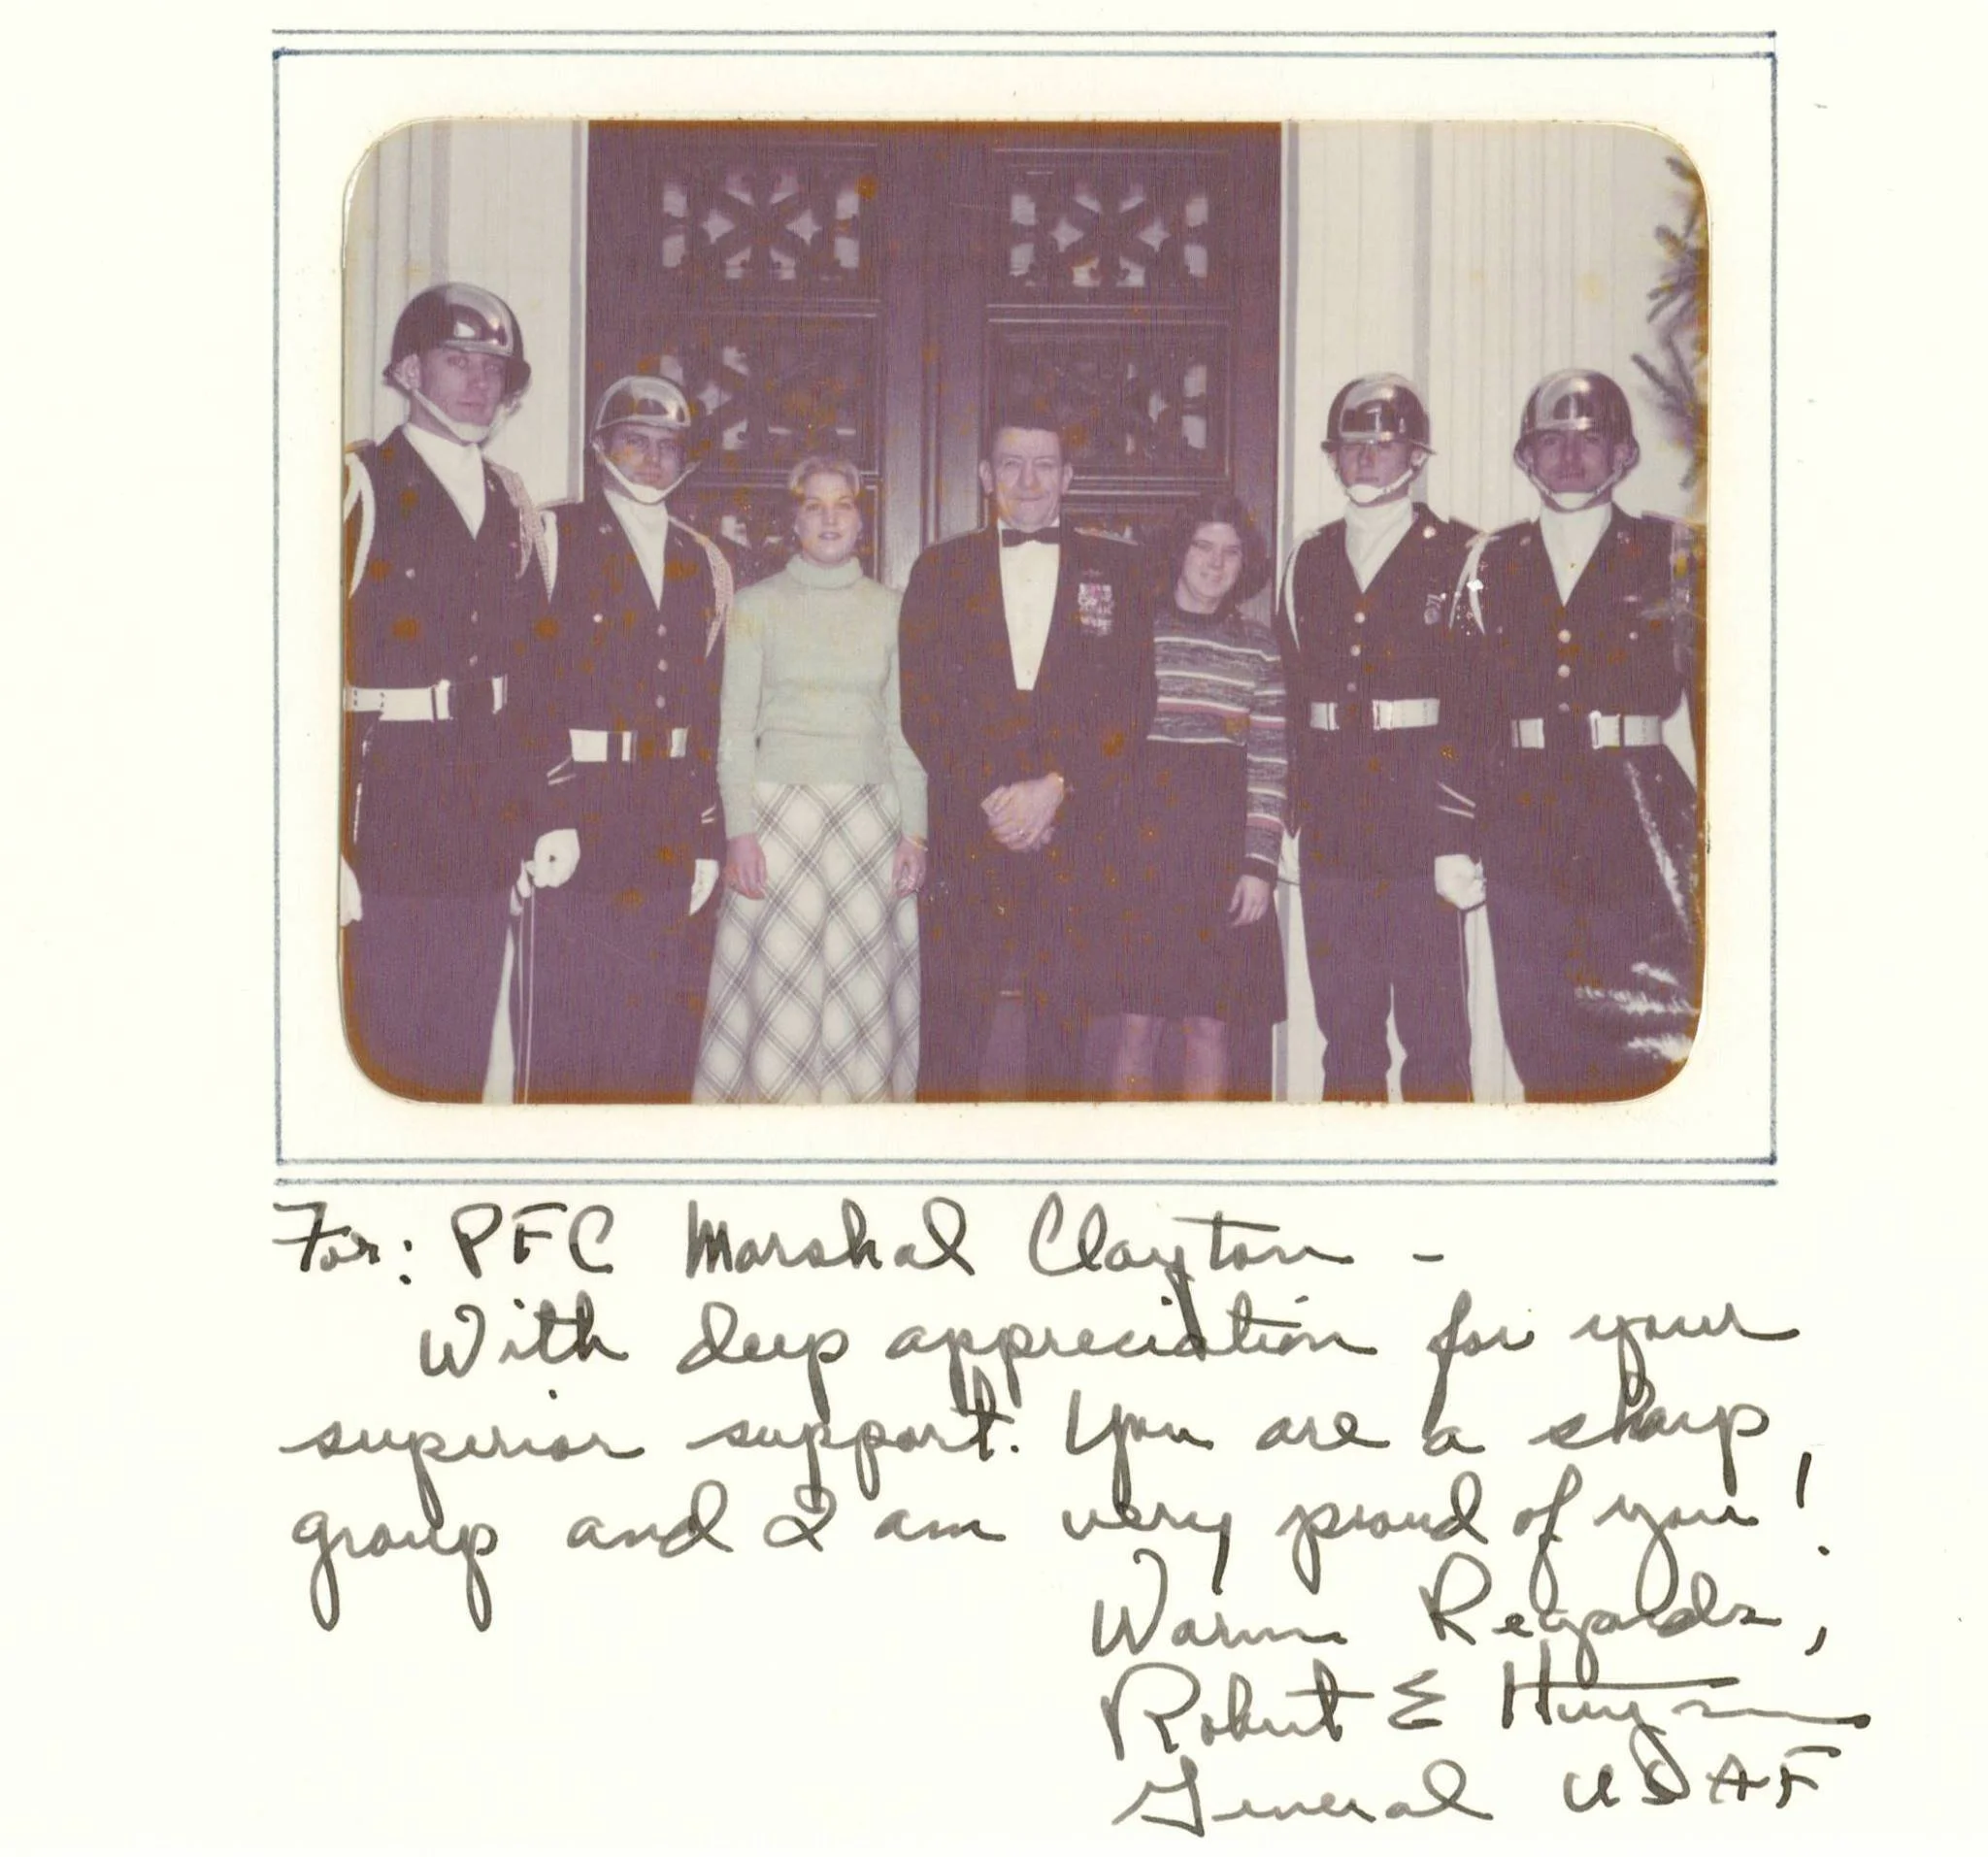 For: PFC Marshal Clayton -
With deep appreciation for your
superior support. You are a sharp
group and I am very proud of you!
Warm Regards,
Robert E Huyser
General USAF